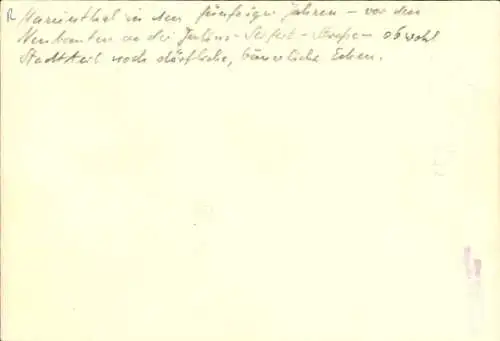 R Marienthal in den fünfziger Jahren – vor den
Neubauten an der Julius-Seifert-Straße – obwohl
Stadtteil noch dörfliche, bäuerliche Ecken.